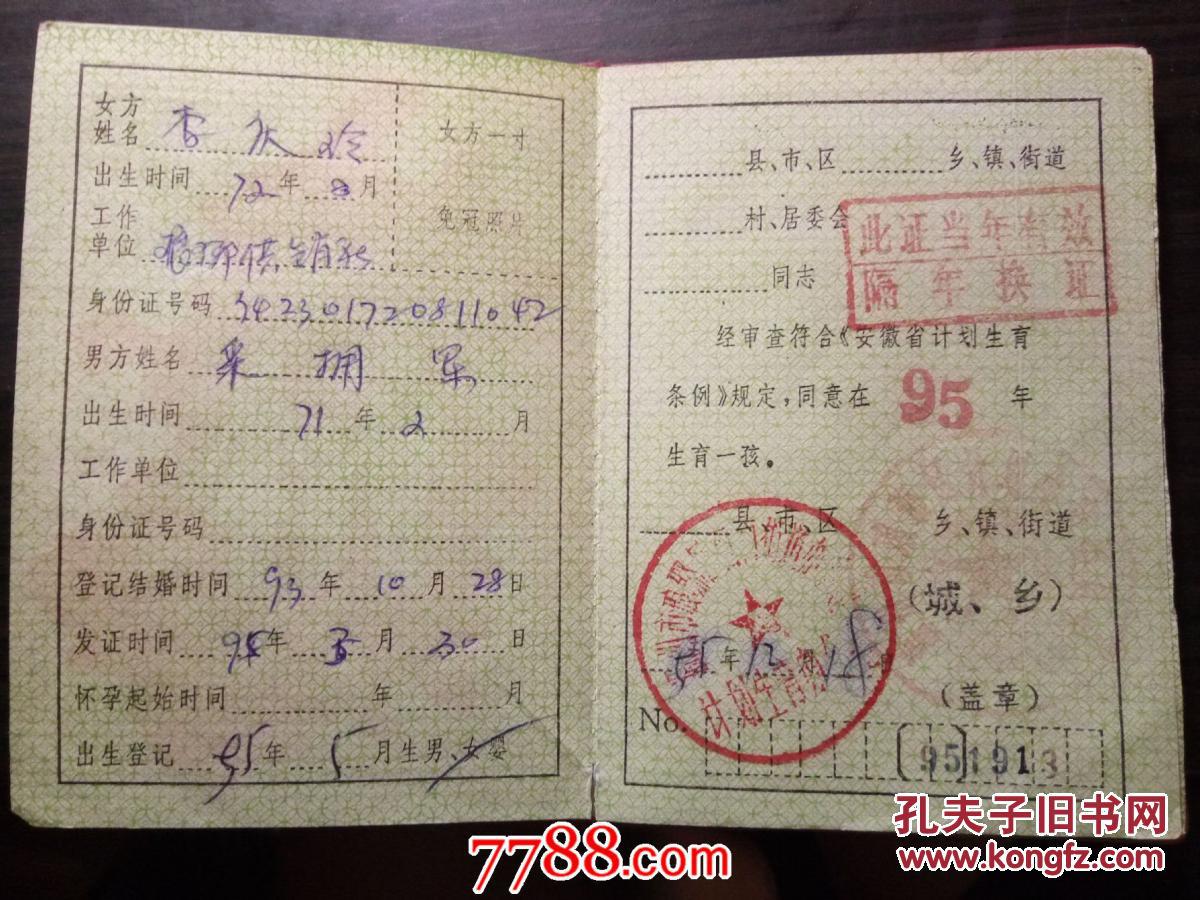 女方
姓名 李庆玲
女方一寸
免冠照片
出生时间 72年 8月
工作
单位 供销社
身份证号码 342301720811042
男方姓名 拥军
出生时间 71年2月
工作单位
身份证号码
登记结婚时间 93年10月28日
发证时间 95年3月30日
怀孕起始时间 年 月
出生登记 95年5月生男、女婴
县、市、区 乡、镇、街道
村、居委会
同志
此证当年有效
隔年换证
经审查符合《安徽省计划生育
条例》规定,同意在 95 年
生育一孩。
县、市、区 乡、镇、街道
(城、乡)
计划生育
95年12月18日
(盖章)
No. (95)1913
孔夫子旧书网
www.kongfz.com
7788.com